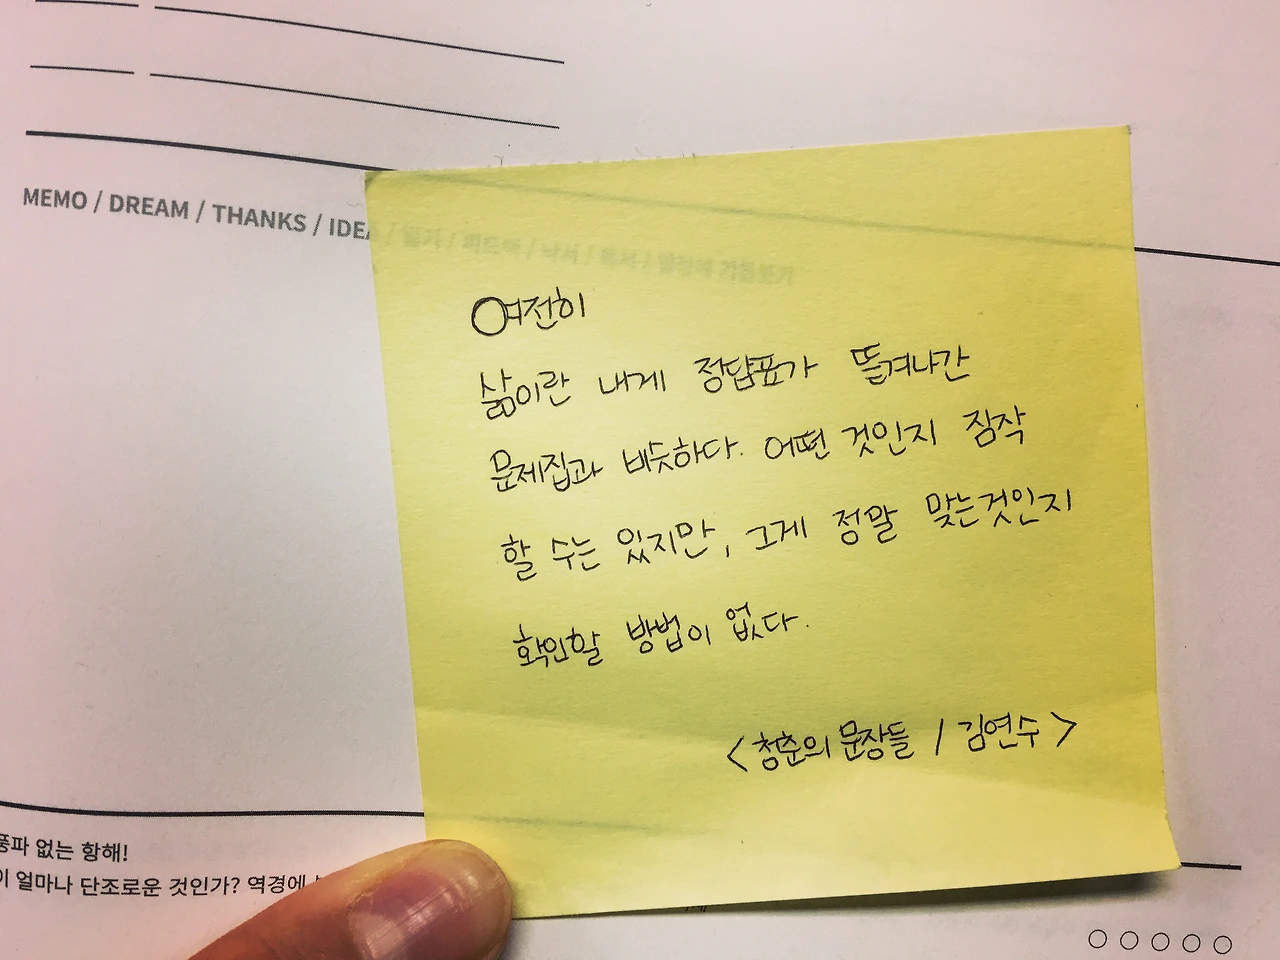 MEMO / DREAM / THANKS / IDEA / 일기 / 피드백 / 낙서 / 독서 / 열정에 기름붓기
여전히
삶이란 내게 정답표가 뜯겨나간
문제집과 비슷하다. 어떤 것인지 짐작
할 수는 있지만, 그게 정말 맞는것인지
확인할 방법이 없다.
<청춘의 문장들 / 김연수>
풍파 없는 항해!
이 얼마나 단조로운 것인가? 역경에